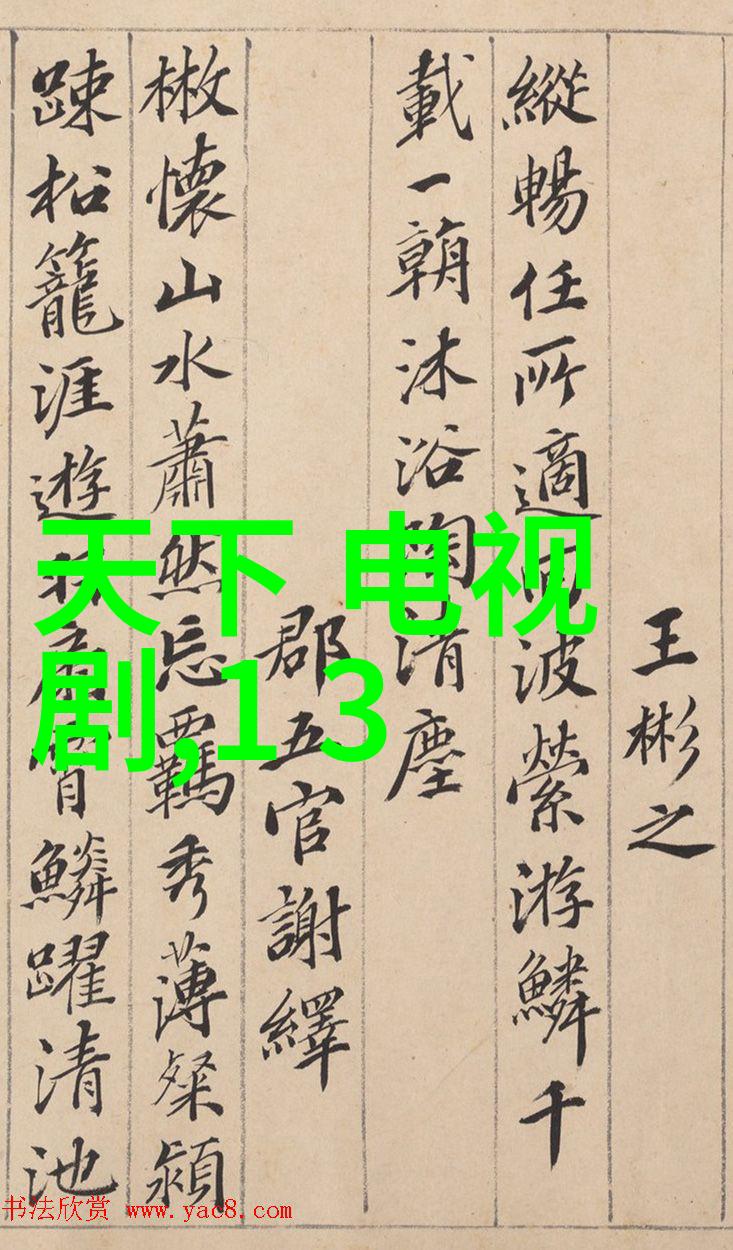 王彬之
縱暢任所適回波縈游鱗千
載一朝沐浴陶清塵
郡五官謝繹
懷山水蕭然忘羈秀薄粲穎
踈松籠涯遊羽扇霄鱗躍清池
天下 电视
剧,1 3
书法欣赏 www.yac8.com